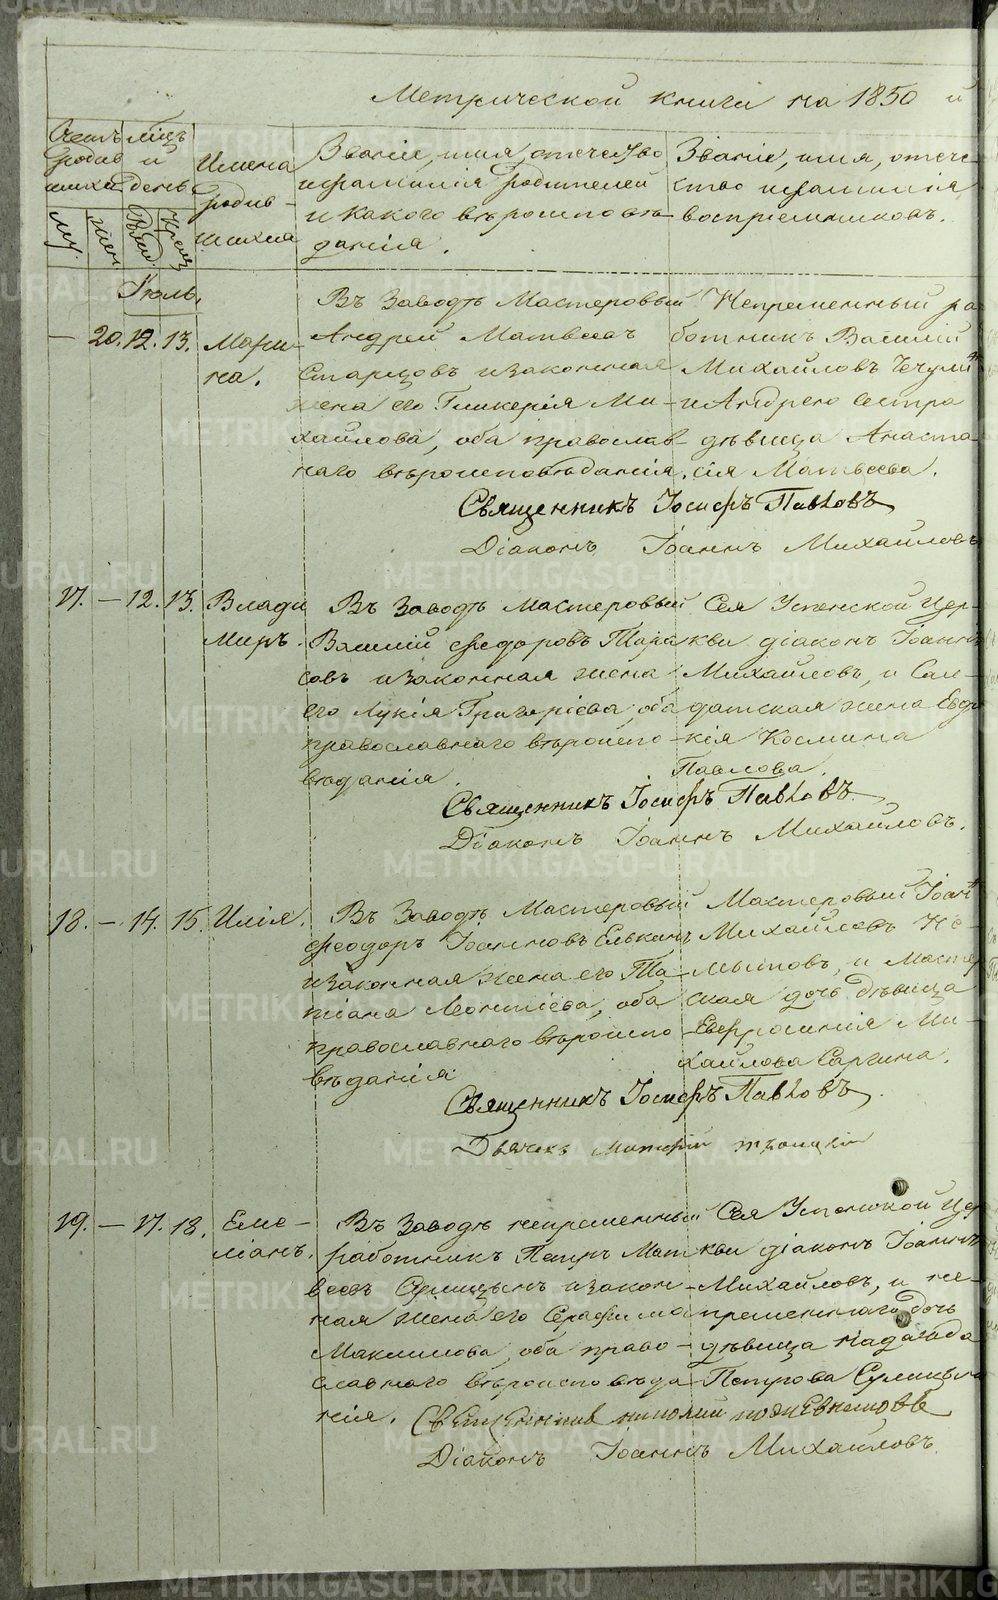 Метрической книги на 1850 й
Счетъ родив шихся
Мѣсяцъ и день
Имена родив-
шихся
му.
жен
Рожд.
Крещ
Званіе, имя, отчество
и фамилія родителей
и какого вѣроисповѣ-
данія.
Званіе, имя, отече-
ство и фамилія
воспріемниковъ.
Іюль.
— 20. 12. 13. Мари-
на.
Въ Заводѣ Мастеровый
Андрей Матвеевъ
Старцовъ и законная
жена его Гликерія Ми-
хайлова, оба православ-
наго вѣроисповѣданія.
Непременный ра
ботникъ Василій
Михайловъ
и Андрею сестра
дѣвица Анаста-
сія Матвеева.
Священникъ Іосифъ Павловъ
Діаконъ Іоаннъ Михайловъ
17. — 12. 13. Влади
миръ.
Въ Заводѣ Мастеровый
Василій Феодоровъ Тара
совъ и законная жена
его Лукія Григоріева, оба
православнаго вѣроиспо-
вѣданія.
Сея Успенской Цер-
кви діаконъ Іоаннъ
Михайловъ, и Сол-
датская жена Евдо
кія Космина
Павлова.
Священникъ Іосифъ Павловъ
Діаконъ Іоаннъ Михайловъ.
18. — 14. 15. Илія.
Въ Заводѣ Мастеровый
Феодоръ Іоанновъ Елькинъ
и законная жена его Та-
тіана Леонтіева, оба
православнаго вѣроиспо
вѣданія.
Мастеровый Іоан
Михайловъ Ко-
мытовъ, и Масте
ская дочь дѣвица
Евфросинія Ми-
хайлова Саргина.
Священникъ Іосифъ Павловъ.
Дьячекъ
19. — 17. 18. Еме-
ліанъ.
Въ Заводѣ непременный
работникъ Петръ Мат
веевъ и закон-
ная жена его Серафима
Максимова, оба право-
славнаго вѣроисповѣда
нія.
Сея Успенской Цер
кви діаконъ Іоаннъ
Михайловъ, и не-
пременнаго дочь
дѣвица Надежда
Петрова
Священникъ
Діаконъ Іоаннъ Михайловъ.
METRIKI.GASO-URAL.RU